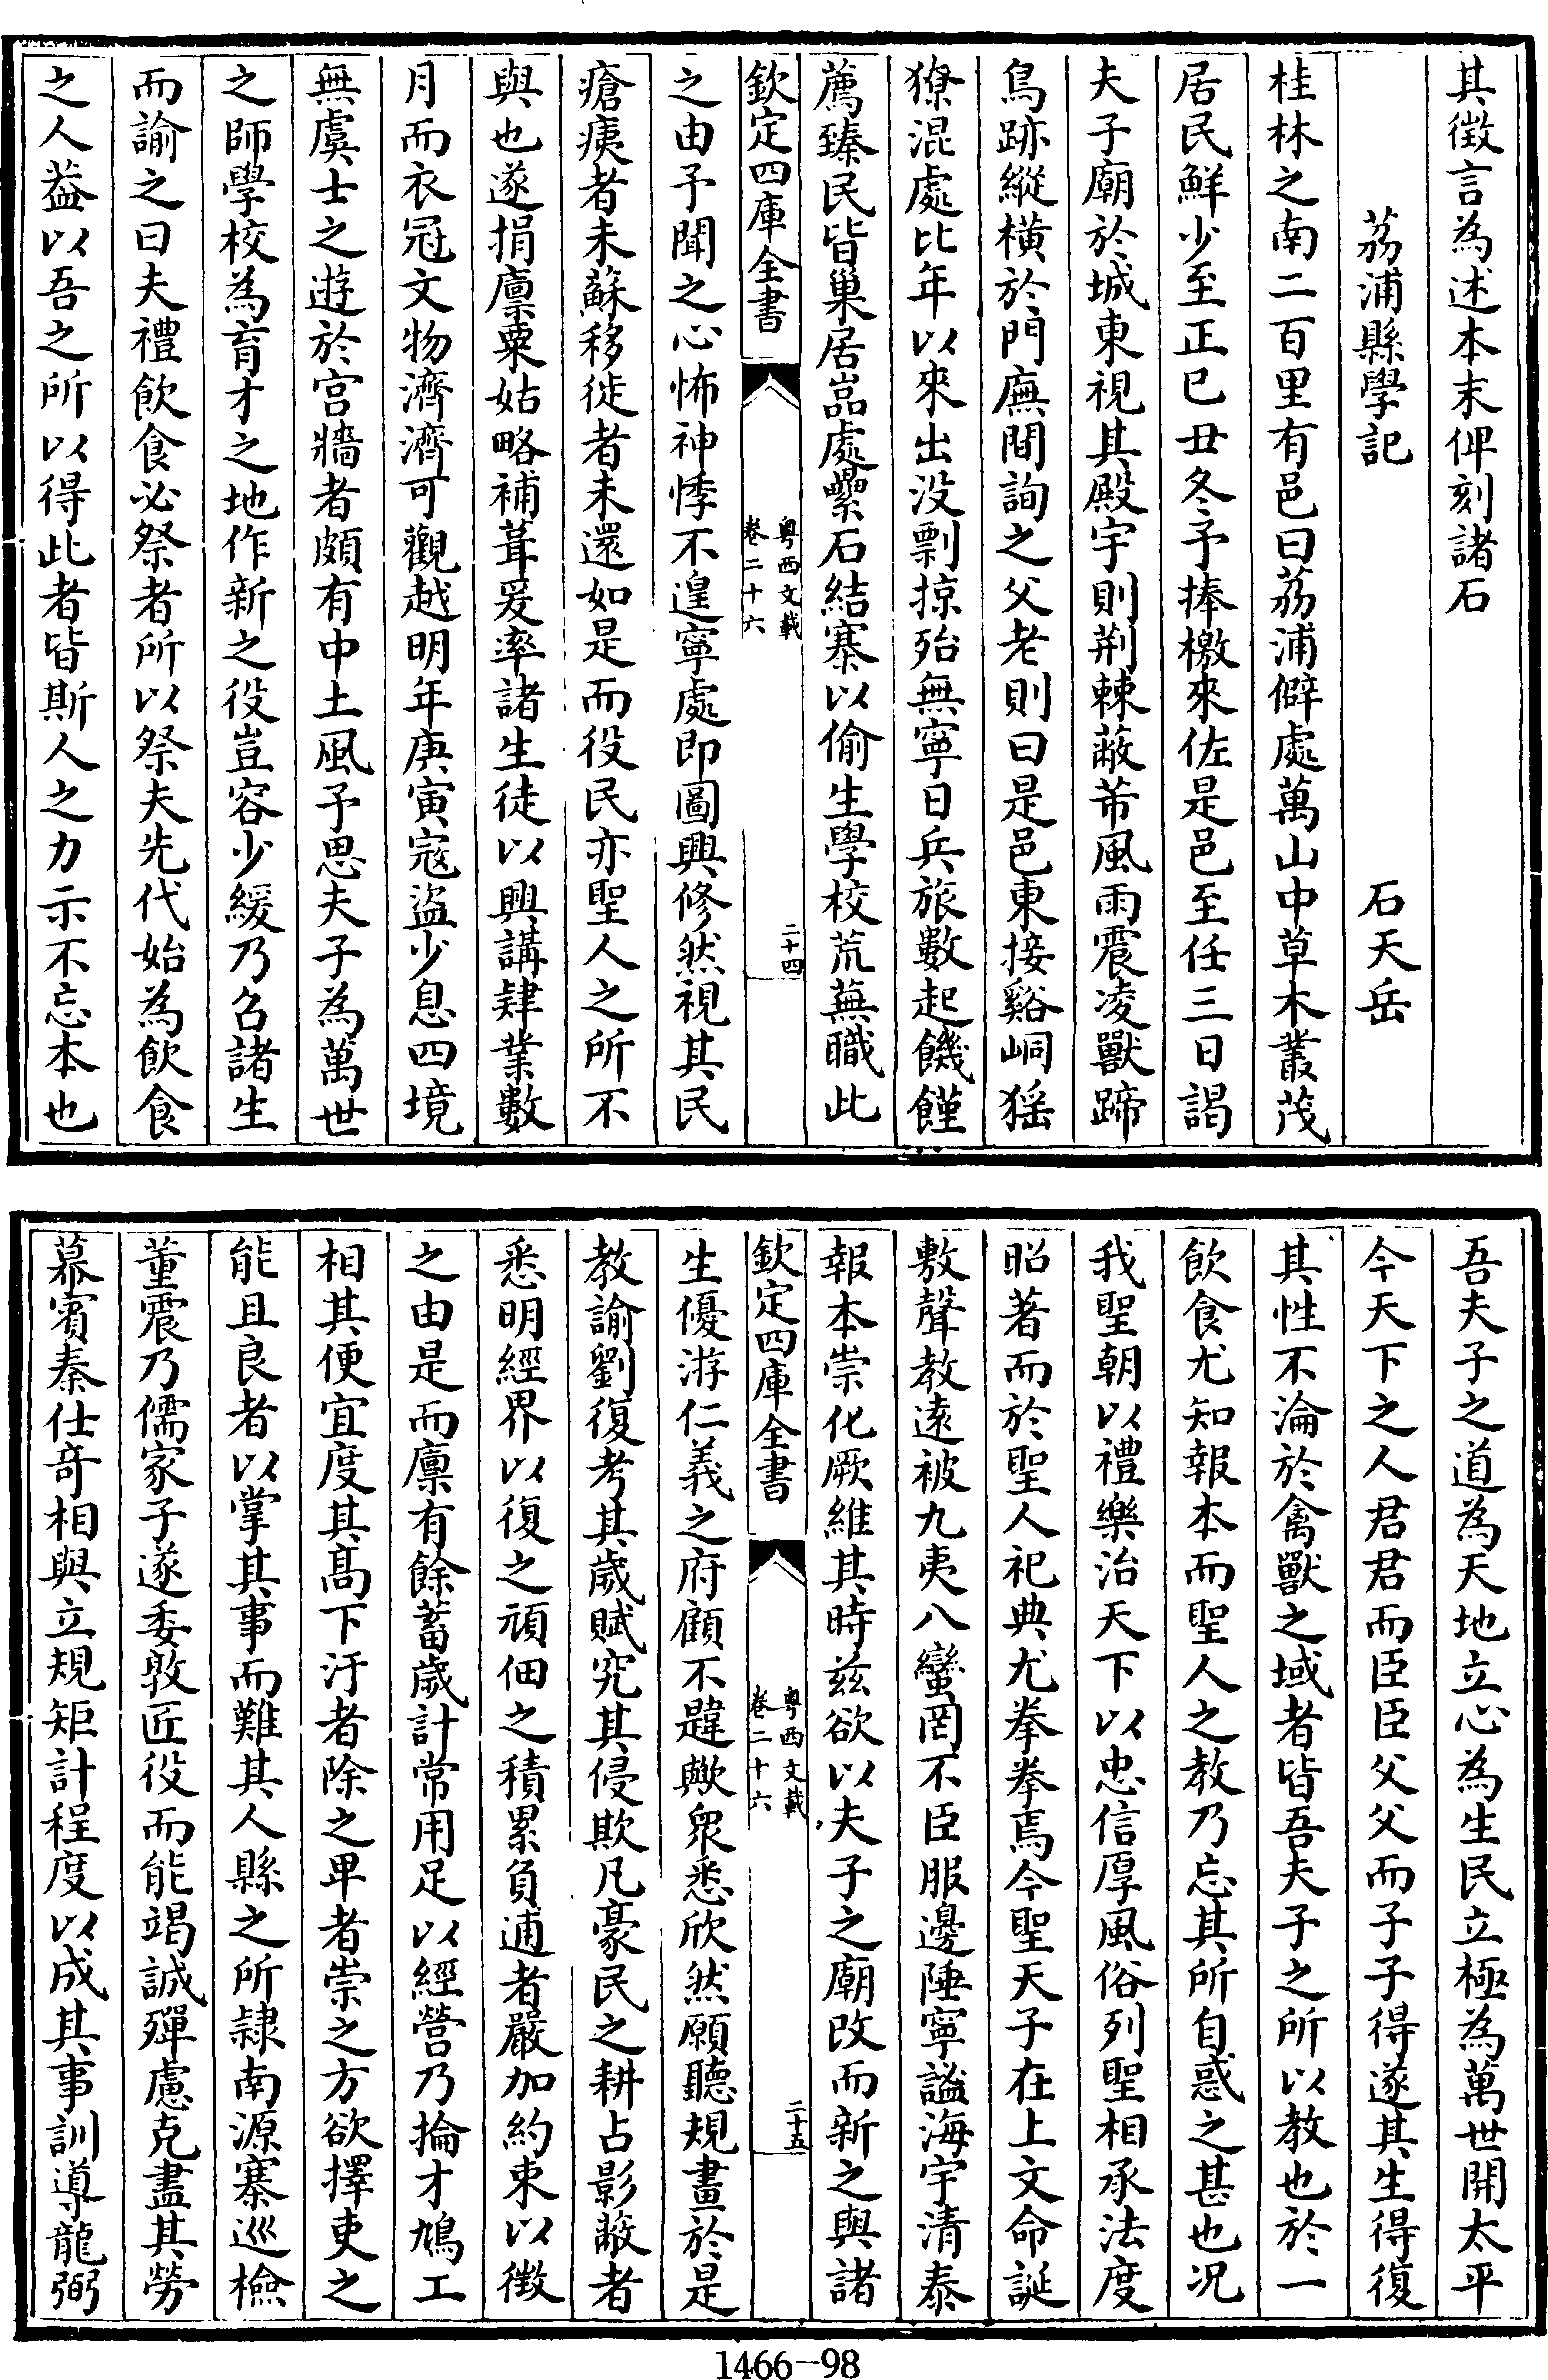 其徵言為述本末俾刻諸石
荔浦縣學記　石天岳
桂林之南二百里有邑曰荔浦僻處萬山中草木叢茂
居民鮮少至正己丑冬予捧檄來佐是邑至任三日謁
夫子廟於城東視其殿宇則荆棘蔽芾風雨震凌獸蹄
鳥跡縱橫於門廡間詢之父老則曰是邑東接谿峒猺
獠混處比年以來出没剽掠殆無寧日兵旅數起饑饉
薦臻民皆巢居嵓處纍石結寨以偷生學校荒蕪職此
欽定四庫全書
粤西文載
卷二十六
二十四
之由予聞之心怖神悸不遑寧處即圖興修然視其民
瘡痍者未蘇移徙者未還如是而役民亦聖人之所不
與也遂捐廪粟姑略補葺爰率諸生徒以興講肄業數
月而衣冠文物濟濟可觀越明年庚寅寇盜少息四境
無虞士之遊於宫牆者頗有中土風予思夫子為萬世
之師學校為育才之地作新之役豈容少緩乃召諸生
而諭之曰夫禮飲食必祭者所以祭夫先代始為飲食
之人葢以吾之所以得此者皆斯人之力示不忘本也
吾夫子之道為天地立心為生民立極為萬世開太平
今天下之人君君而臣臣父父而子子得遂其生得復
其性不淪於禽獸之域者皆吾夫子之所以教也於一
飲食尤知報本而聖人之教乃忘其所自惑之甚也况
我聖朝以禮樂治天下以忠信厚風俗列聖相承法度
昭著而於聖人祀典尤拳拳焉今聖天子在上文命誕
敷聲教遠被九夷八蠻罔不臣服邊陲寧謐海宇清泰
報本崇化厥維其時兹欲以夫子之廟改而新之與諸
欽定四庫全書
粤西文載
卷二十六
二十五
生優游仁義之府顧不韙歟衆悉欣然願聽規畫於是
教諭劉復考其歲賦究其侵欺凡豪民之耕占影蔽者
悉明經界以復之頑佃之積累負逋者嚴加約束以徵
之由是而廪有餘蓄歲計常用足以經營乃掄才鳩工
相其便宜度其髙下汙者除之卑者崇之方欲擇吏之
能且良者以掌其事而難其人縣之所隸南源寨巡檢
董震乃儒家子遂委敦匠役而能竭誠殫慮克盡其勞
幕賓秦仕奇相與立規矩計程度以成其事訓導龍弼
1466-98